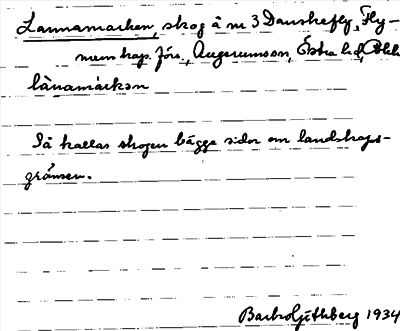 Lannamarken, skog å nr 3 Danskefly, Fly-
mens kap. förs., Augerumson, Östra hd, Blek.
lànamárkan
Så kallas skogen bägge sidor om landskaps-
gränsen.
Barbro Göthberg 1934